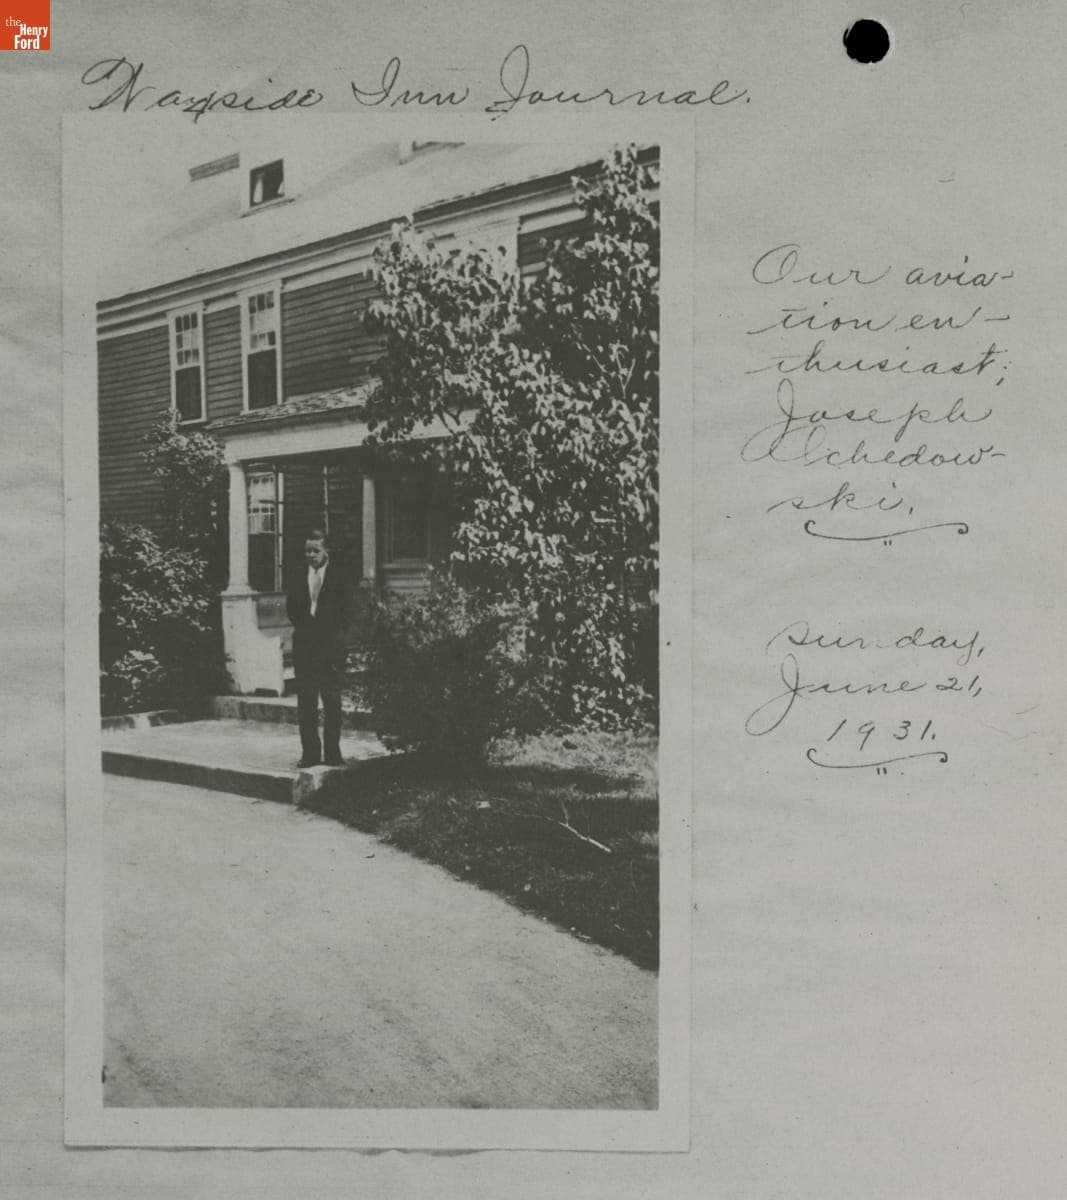 the
Henry
Ford
Wayside Inn Journal.
Our avia-
tion en-
thusiast;
Joseph
Olchedow-
ski.
Sunday,
June 21,
1931.